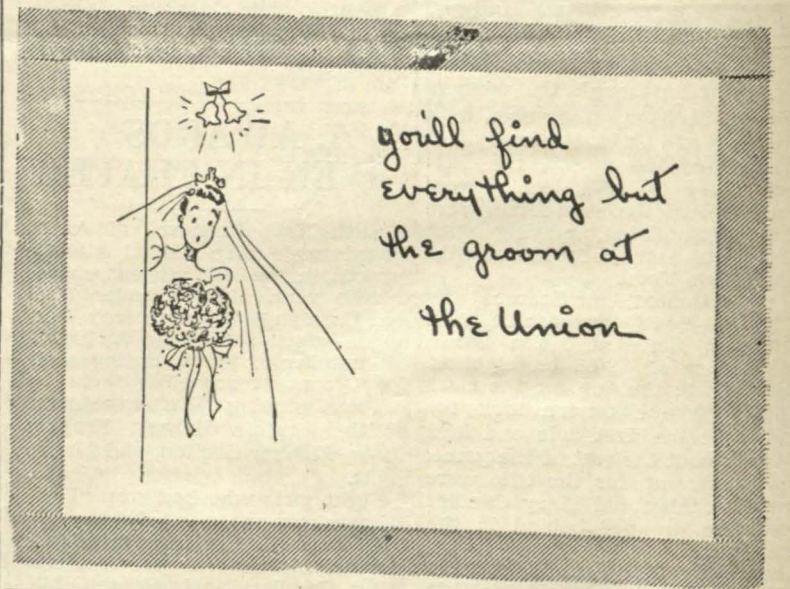 you'll find
everything but
the groom at
the Union